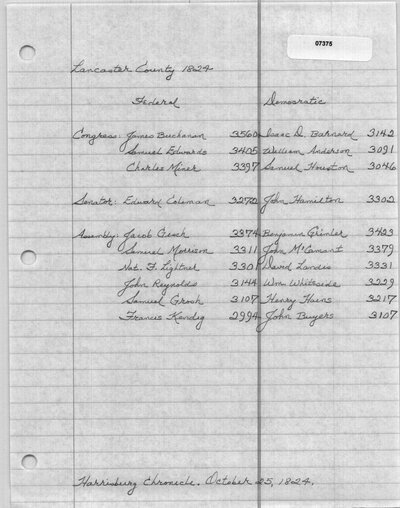 07375
Lancaster County 1824
Federal Democratic
Congress: James Buchanan 3560 Isaac D. Barnard 3142
Samuel Edwards 3405 William Anderson 3091
Charles Miner 3397 Samuel Houston 3046
Senator: Edward Coleman 3270 John Hamilton 3302
Assembly: Jacob 3374 Benjamin Grimler 3423
Samuel Morrison 3311 John McCamant 3379
Nat. F. Lightner 3301 David Landis 3331
John Reynolds 3144 Wm. Whiteside 3229
Samuel Grosh 3107 Henry Hains 3217
Francis Kendig 2994 John Buyers 3107
Harrisburg Chronicle. October 25, 1824.